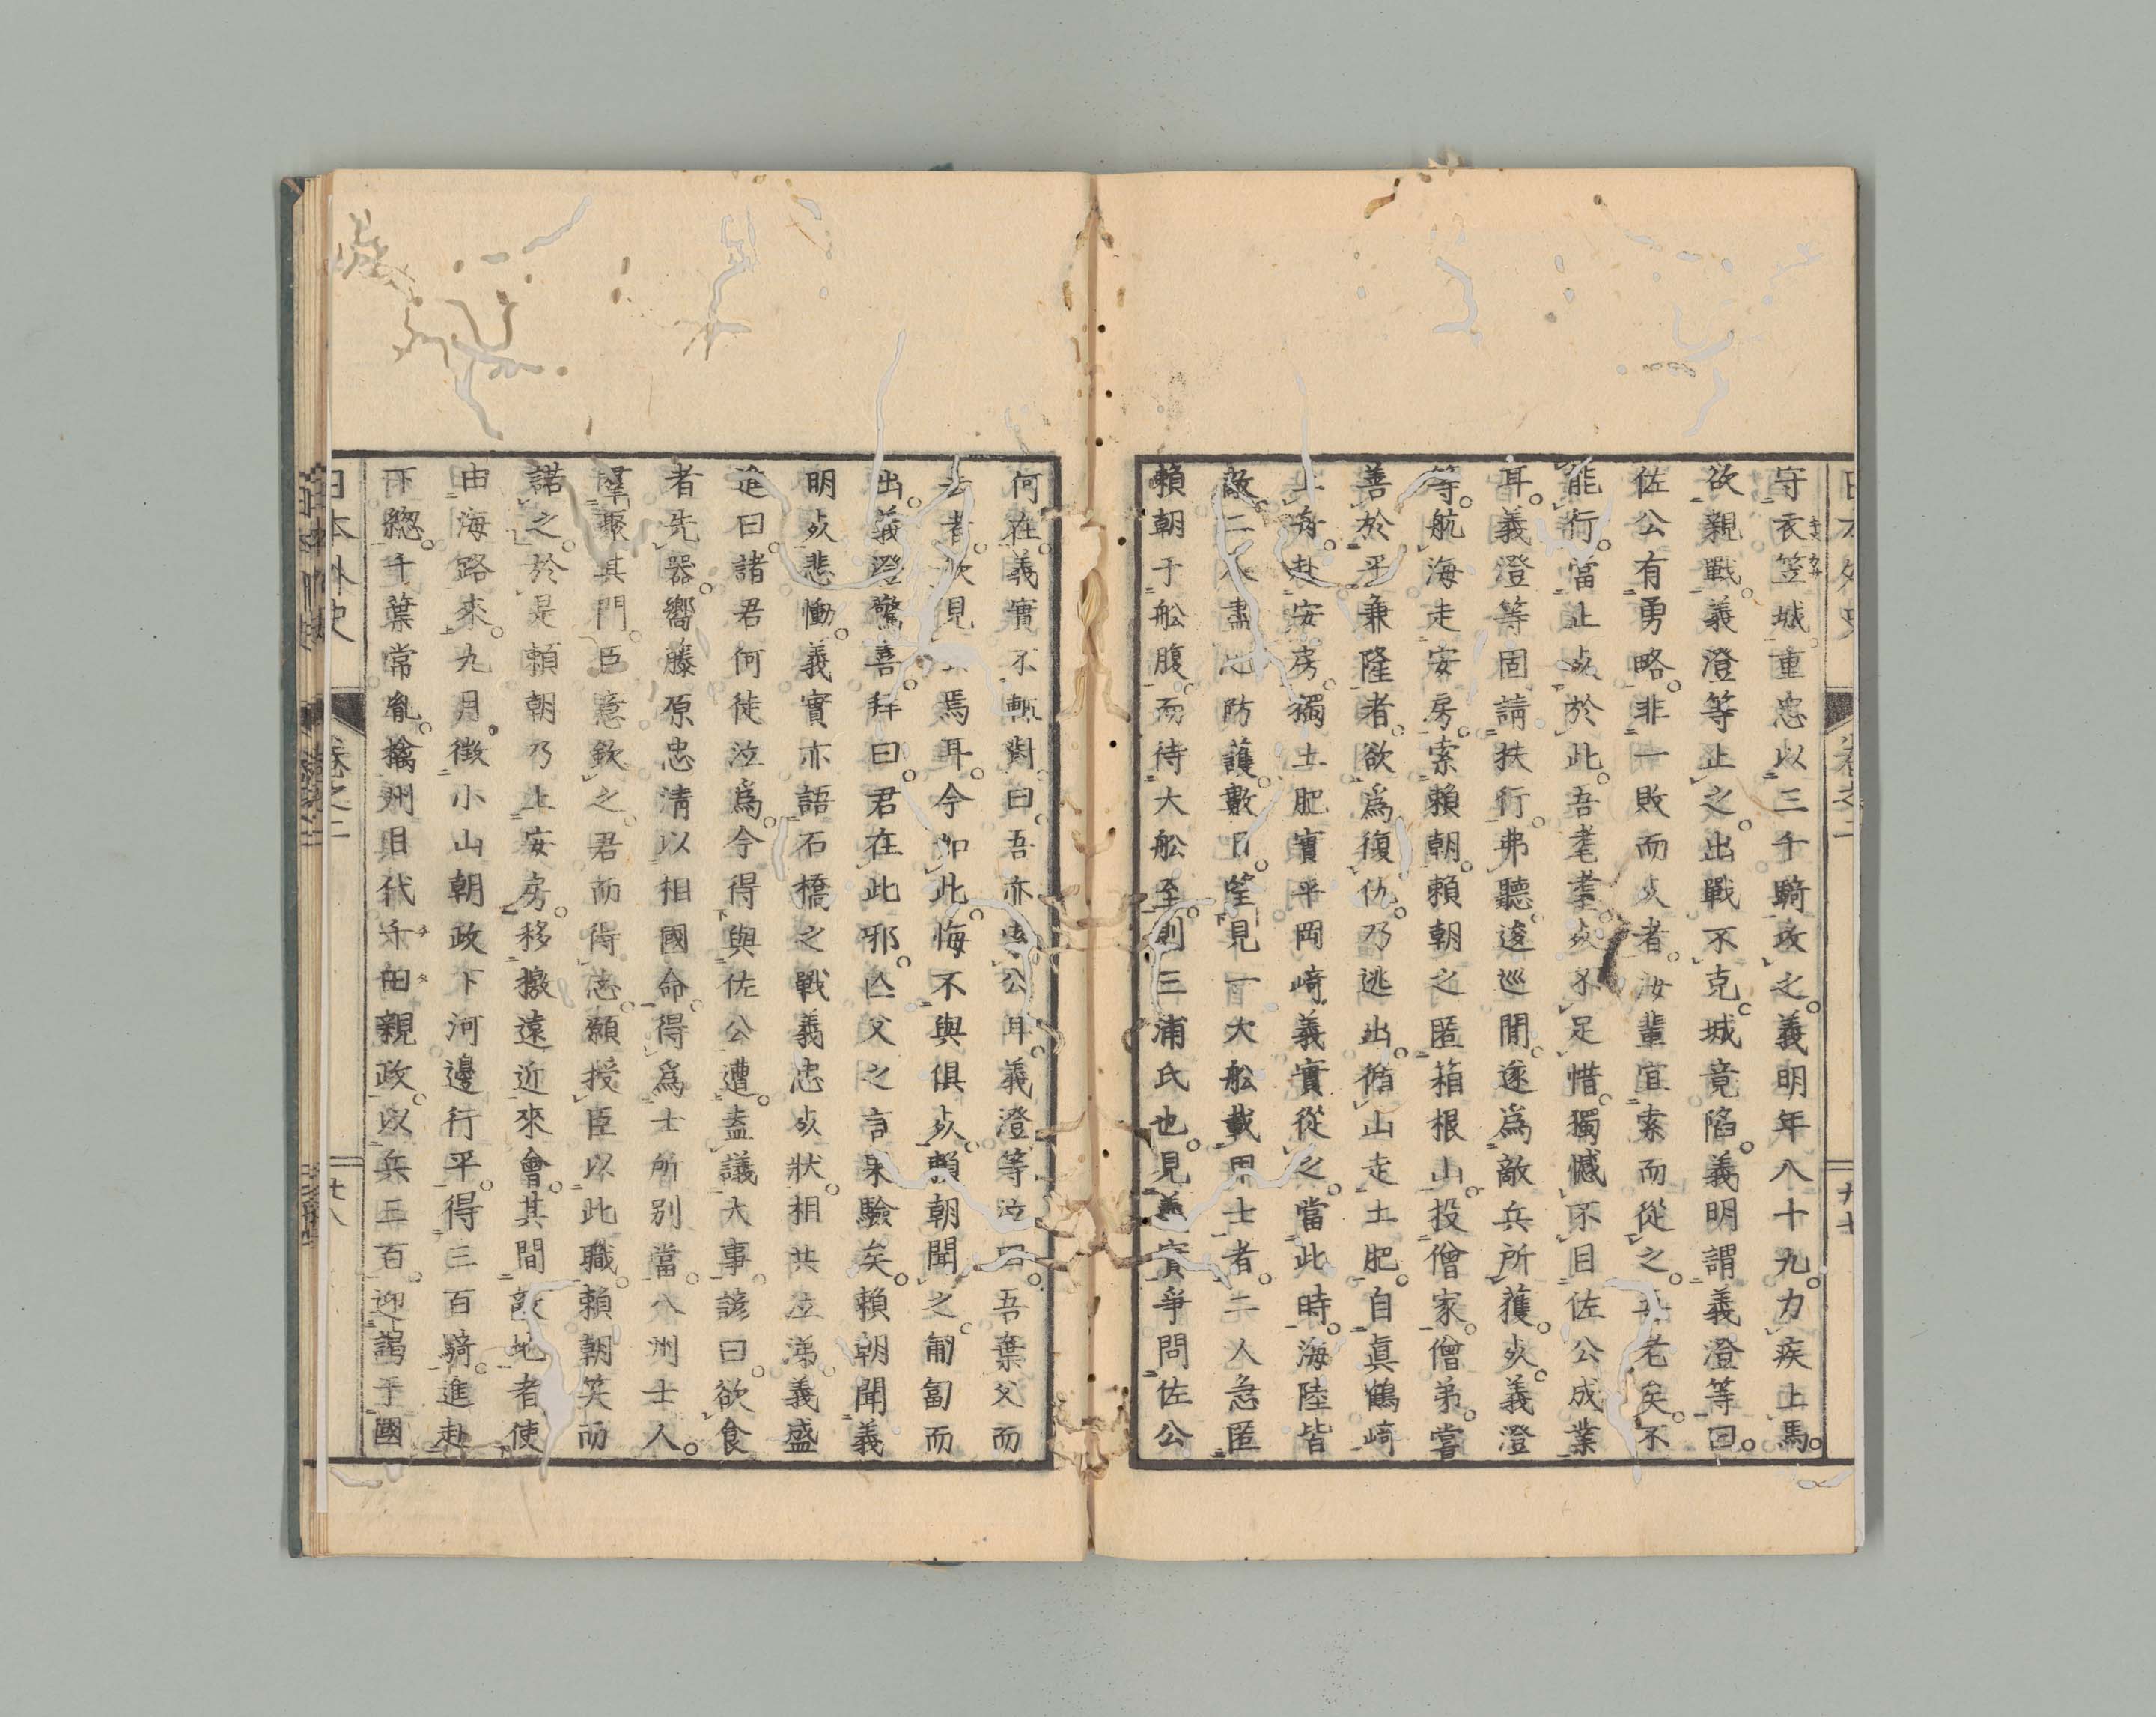 守衣笠城。重忠以三千騎攻之。義明年八十九。力疾上馬。
欲親戰。義澄等止之。出戰不克。城竟陷。義明謂義澄等曰。
佐公有勇略。非一敗而死者。汝輩宜索而從之。老矣。不
能行。當止死於此。吾耄耋死不足惜。獨憾不目佐公成業
耳。義澄等固請扶行。弗聽。逡巡間。遂爲敵兵所獲。死。義澄
等。航海走安房。索賴朝。賴朝之匿箱根山。投僧家。僧弟。嘗
善於平兼隆者。欲爲復仇。乃逃出。循山走土肥。自眞鶴崎
上舟赴安房。獨土肥實平岡崎義實從之。當此時。海陸皆
敵。二人盡心防護。數日。望見一大船載甲士者。二人急匿
賴朝于船腹。而待大船至。則三浦氏也。見義實爭問佐公
何在。義實不輒對。曰。吾亦索公耳。義澄等泣曰。吾棄父而
去者。欲見公焉耳。今如此。悔不與俱死。賴朝聞之。匍匐而
出。義澄驚喜拜曰。君在此邪。亡父之言果驗矣。賴朝聞義
明死悲慟。義實亦語石橋之戰義忠死狀。相共泣涕。義盛
進曰。諸君何徒泣爲。今得與佐公遭。盍議大事。諺曰。欲食
者先器。嚮藤原忠淸以相國命。得爲士所別當。八州士人。
羣聚其門。臣意欽之。君而得志。願授臣以此職。賴朝笑而
諾之。於是賴朝乃上安房。移檄遠近來會。其間敵地者。使
由海路來。九月。徵小山朝政下河邊行平。得三百騎。進赴
下總。千葉常胤。擒州目代千田親政。以兵三百。迎謁于國
日本外史
卷之二
十八